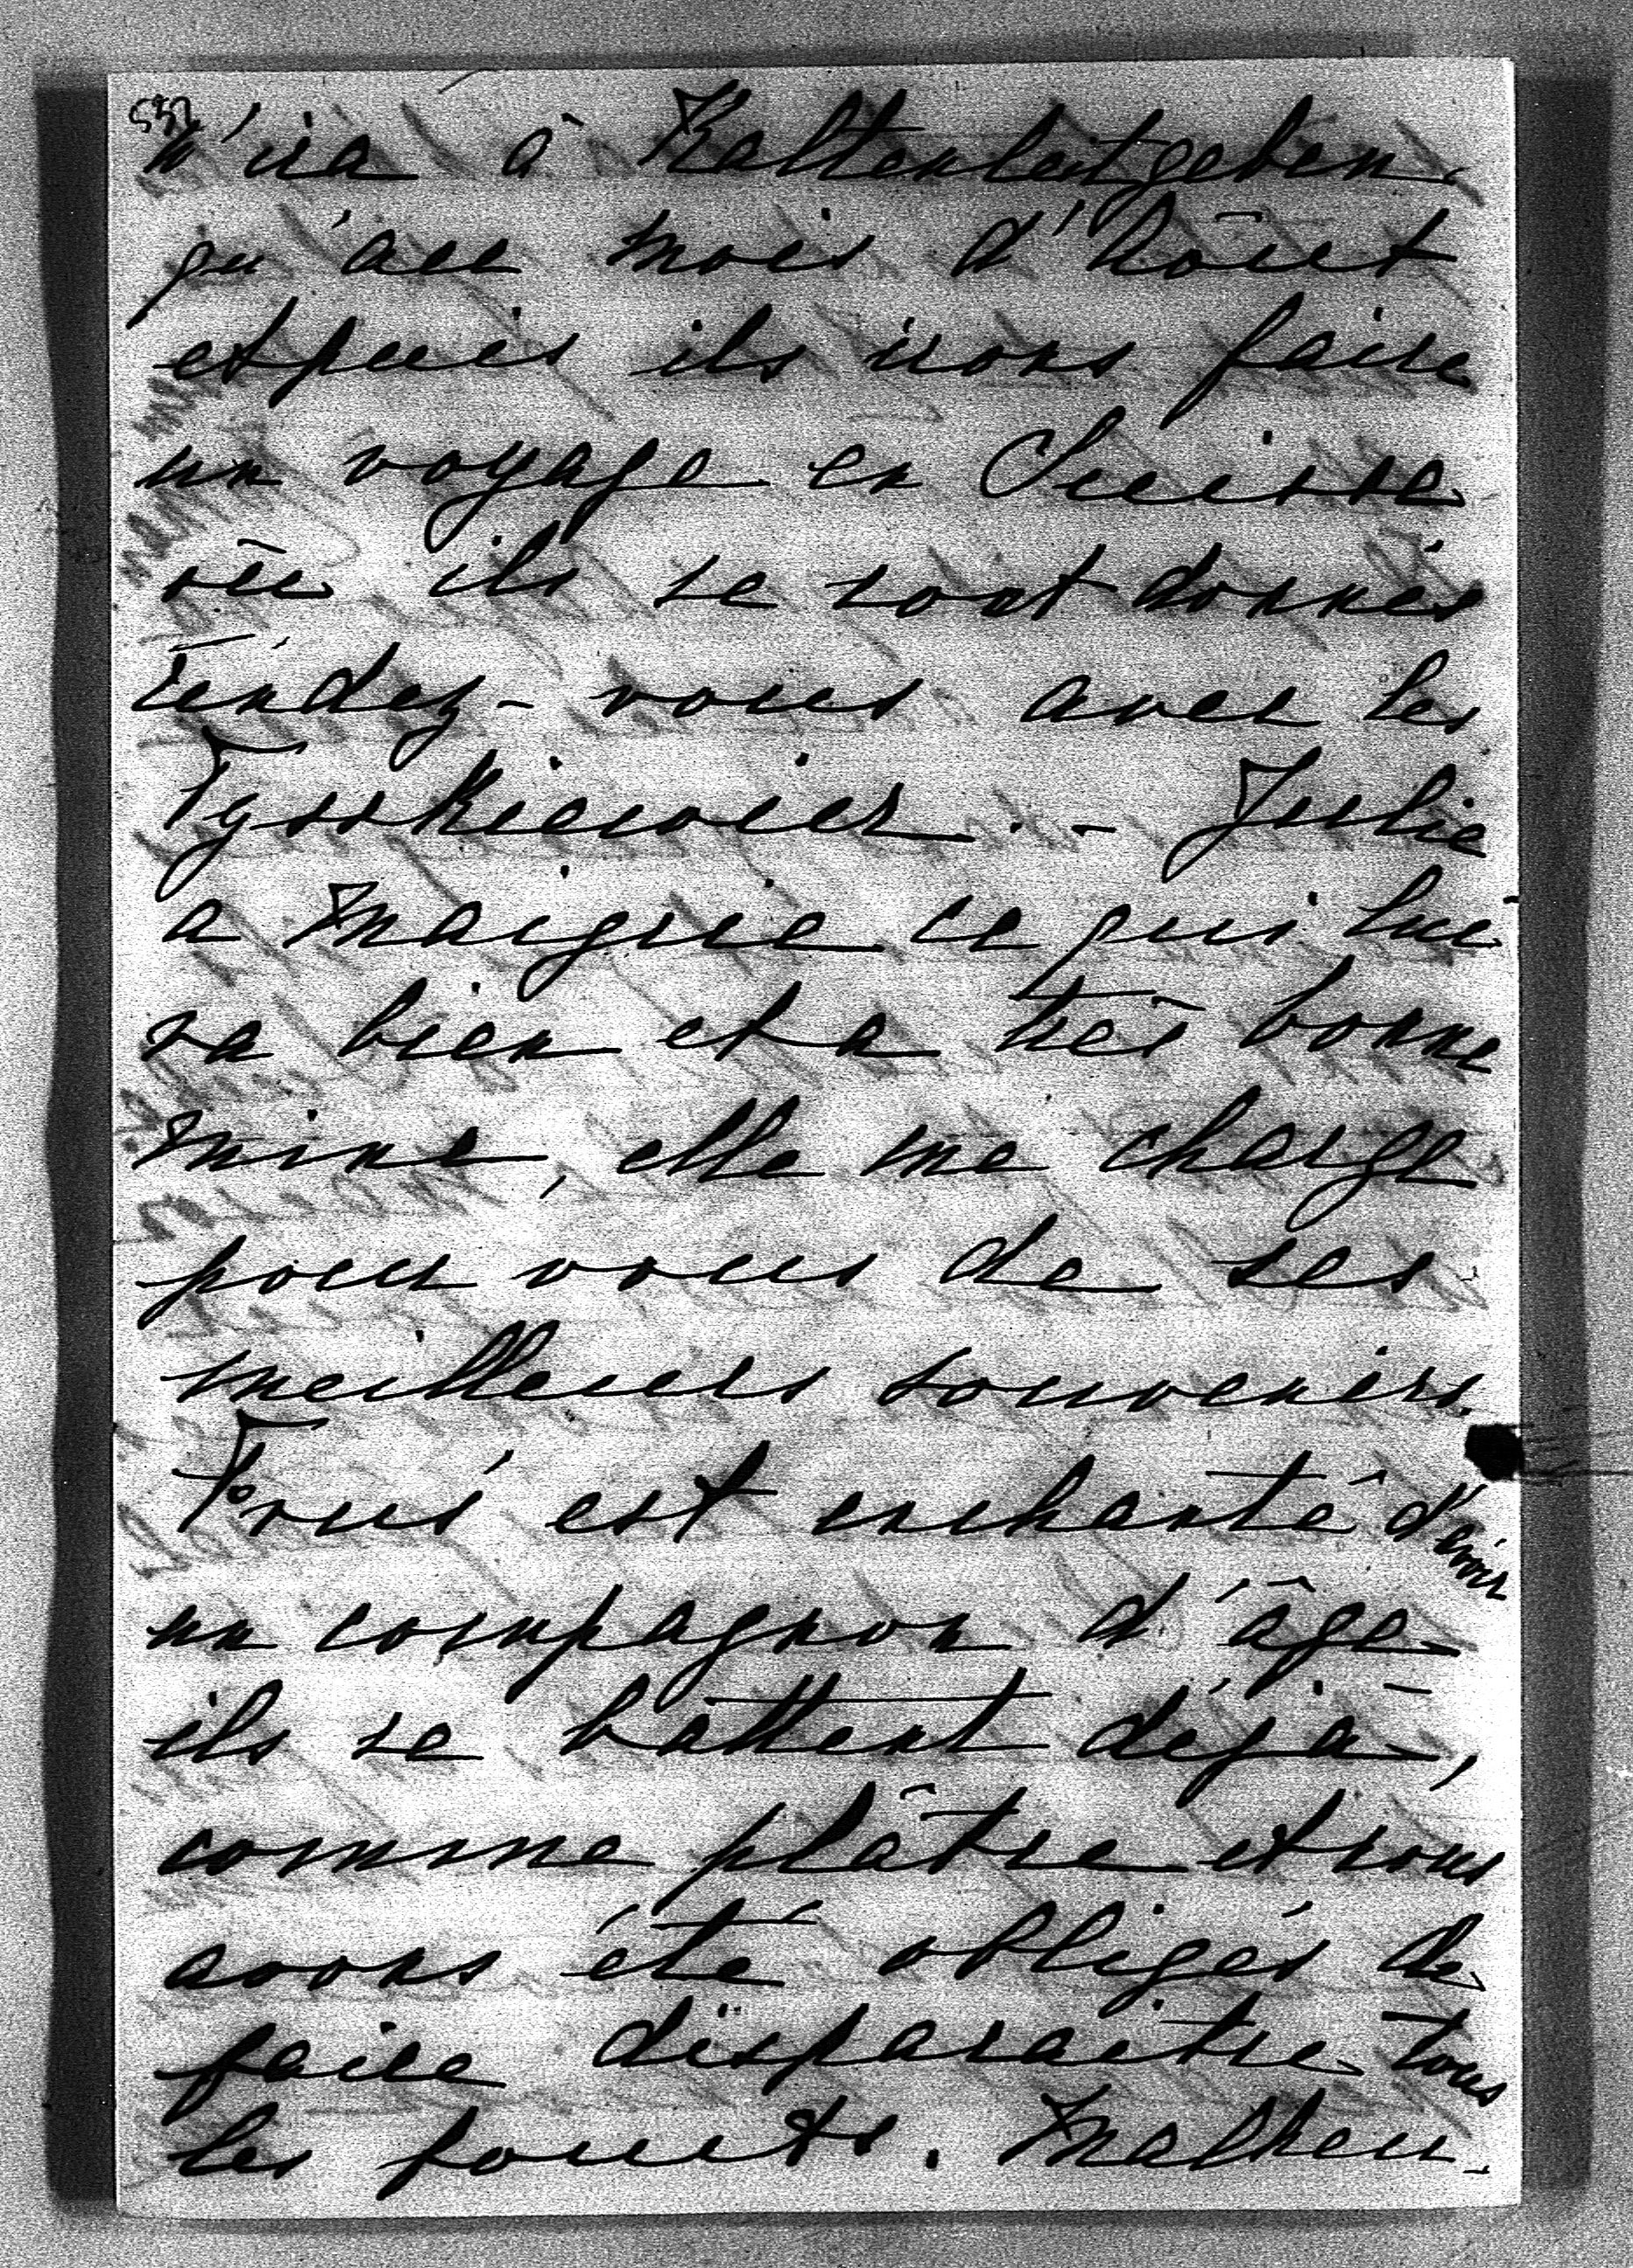 n'ira à Kaltenleutgeben
qu'au mois d'Août
et puis ils irons faire
un voyage en Suisse
où ils se sont donnés
rendez-vous avec les
Tysskiewicz. - Julie
a maigrie ce qui lui
va bien et a très bonne
mine, elle me charge
pour vous de ses
meilleurs souvenirs.
est enchanté d'avoir
un compagnon d'âge
ils se battent déjà,
comme plâtre et nous
avons été obligés de
faire disparaitre tous
les fouets. Malheu-